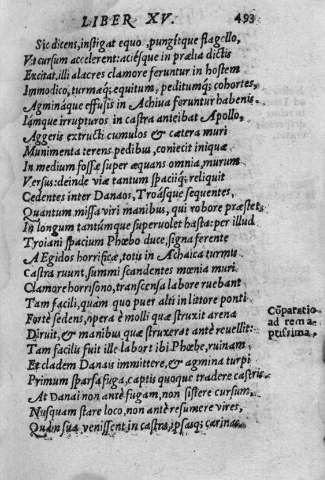 LIBER XV. 493
Sic dicens, instigat equo, pungitque flagello,
Vt cursum accelerent: aciésque in prælia dictis
Excitat, illi alacres clamore feruntur in hostem
Immodico, turmæq; equitum, peditumq́; cohortes,
Agmináque effusis in Achiua feruntur habenis.
Iámque irrupturos in castra anteibat Apollo,
Aggeris extructi cumulos & cætera muri
Munimenta terens pedibus, coniecit iniquæ
In medium fossæ super æquans omnia, murum
Versus: deinde viæ tantum spaciíq; reliquit
Cedentes inter Danaos, Troásque sequentes,
Quantum missa viri manibus, qui robore præstet,
In longum tantúmque superuolet hasta: per illud
Troiani spacium Phœbo duce, signa ferente
AEgidos horrificæ, totis in Achaica turmis
Castra ruunt, summi scandentes mœnia muri.
Clamore horrisono, transcensa labore ruebant
Tam facili, quàm quo puer alti in littore ponti
Fortè sedens, opera è molli quæ struxit arena
Diruit, & manibus quæ struxerat antè reuellit:
Cōparatio
ad rem a-
ptissima.
Tam facilu fuit ille labor tibi Phœbe, ruinam
Et cladem Danaū immittere, & agmina turpi
Primum sparsa fuga, captis quoque tradere castris.
At Danai non antè fugam, non sistere cursum,
Nusquam stare loco, non antè resumere vires,
Quàm sua venissent in castra, ipsasq; carinas